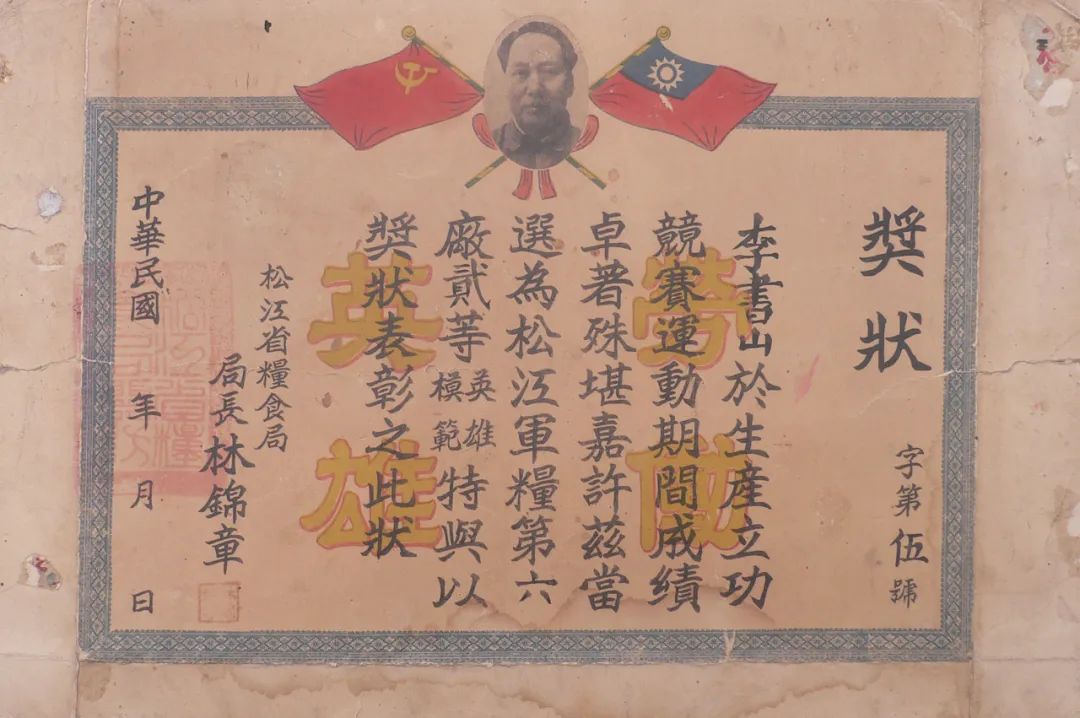 獎狀
字第伍號
李書山於生產立功
競賽運動期間成績
卓著殊堪嘉許茲當
選為松江軍糧第六
廠貳等英雄模範特與以
獎狀表彰之此狀
松江省糧食局
局長林錦章
中華民國 年 月 日
勞働
英雄